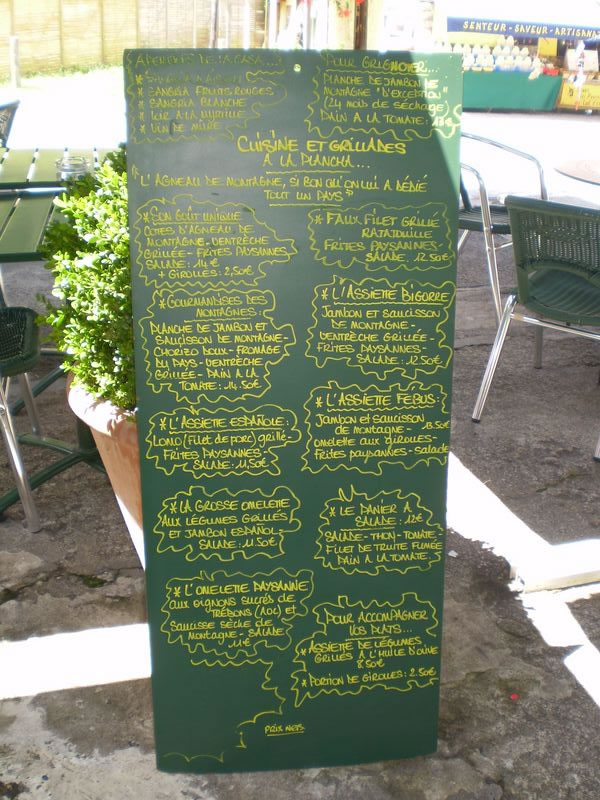 SENTEUR - SAVEUR - ARTISANA
APERITIFS DE LA CASA...
* SANGRIA
* SANGRIA FRUITS ROUGES
* SANGRIA BLANCHE
* KIR A LA MYRTILLE
* VIN DE MÛRE
POUR GRIGNOTER...
PLANCHE DE JAMBON DE
MONTAGNE "D'EXCEPTION"
(24 mois de séchage)
PAIN A LA TOMATE:
CUISINE ET GRILLADES
A LA PLANCHA...
"L'AGNEAU DE MONTAGNE, SI BON QU'ON LUI A DÉDIÉ
TOUT UN PAYS"
* SON GOÛT UNIQUE
COTES D'AGNEAU DE
MONTAGNE - VENTRÈCHE
GRILLÉE - FRITES PAYSANNES
SALADE: 14 €
+ GIROLLES: 2,50€
* FAUX FILET GRILLÉ
RATATOUILLE
FRITES PAYSANNES -
SALADE: 12.50€
* GOURMANDISES DES
MONTAGNES:
PLANCHE DE JAMBON ET
SAUCISSON DE MONTAGNE -
CHORIZO DOUX - FROMAGE
DU PAYS - VENTRÈCHE
GRILLÉE - PAIN A LA
TOMATE: 14.50€
* L'ASSIETTE BIGORRE
JAMBON ET SAUCISSON
DE MONTAGNE -
VENTRÈCHE GRILLÉE -
FRITES PAYSANNES -
SALADE: 12.50€
* L'ASSIETTE ESPAÑOLE:
LOMO (Filet de porc) grillé -
FRITES PAYSANNES -
SALADE: 11,50€
* L'ASSIETTE FÉBUS:
JAMBON et SAUCISSON 13.50€
de montagne -
omelette aux giroles -
Frites paysannes - salade
* LA GROSSE OMELETTE
AUX LÉGUMES GRILLÉS
ET JAMBON ESPAÑOL -
SALADE: 11.50€
* LE PANIER A
SALADE: 12€
SALADE - THON - TOMATE -
FILET DE TRUITE FUMÉE
PAIN A LA TOMATE.
* L'OMELETTE PAYSANNE
aux oignons sucrés de
TRÉBONS (AOC) et
SAUCISSE SÈCHE de
MONTAGNE - SALADE
11€
POUR ACCOMPAGNER
VOS PLATS...
* ASSIETTE DE LÉGUMES
GRILLÉS A L'HUILE D'OLIVE
8.50€
* PORTION DE GIROLLES: 2.50€
PRIX NETS